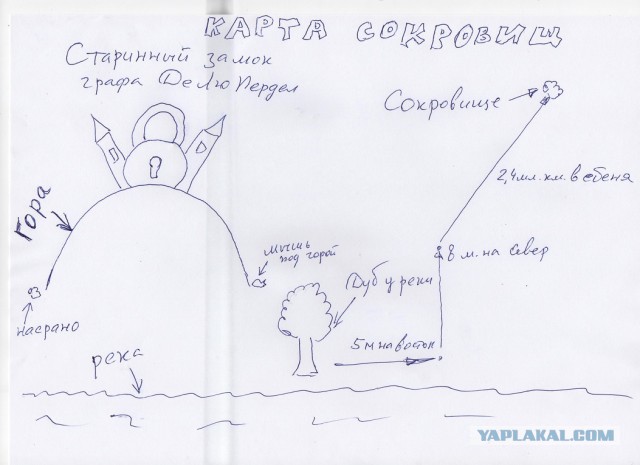 КАРТА СОКРОВИЩ
Старинный замок
графа ДеЛю Пердел
Сокровище
2,4 мл. км. в ебеня
Гора
8 м. на север
мышь
под горой
Дуб у реки
насрано
5 м на восток
река
YAPLAKAL.COM